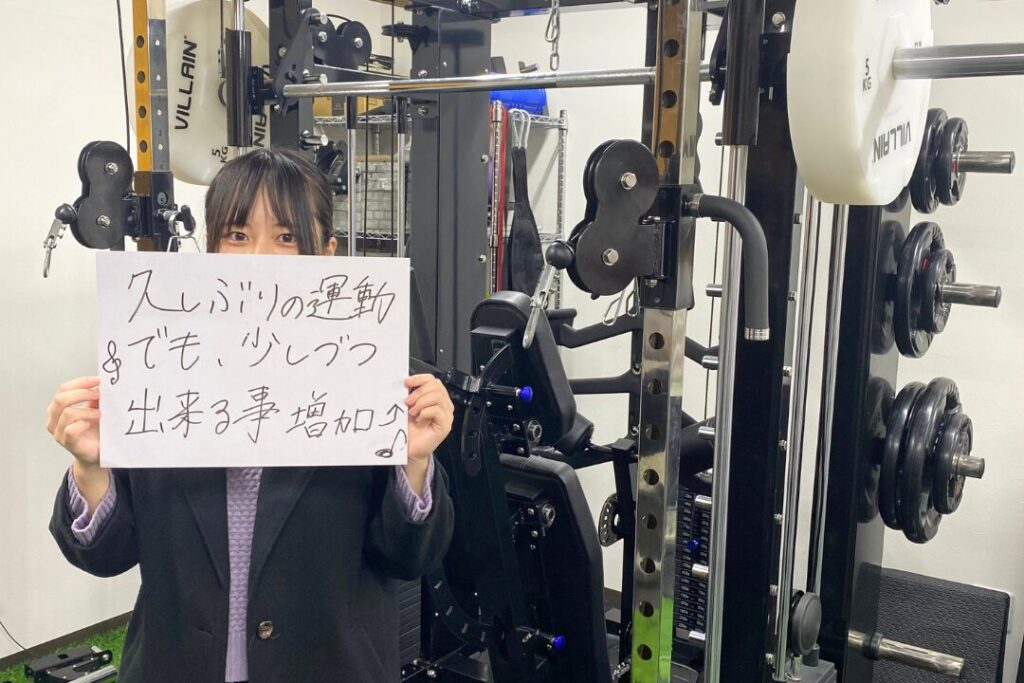 久しぶりの運動
でも、少しづつ
出来る事増加↑
VILLAIN
5
KG
VILLAIN
5
KG
VILLAIN